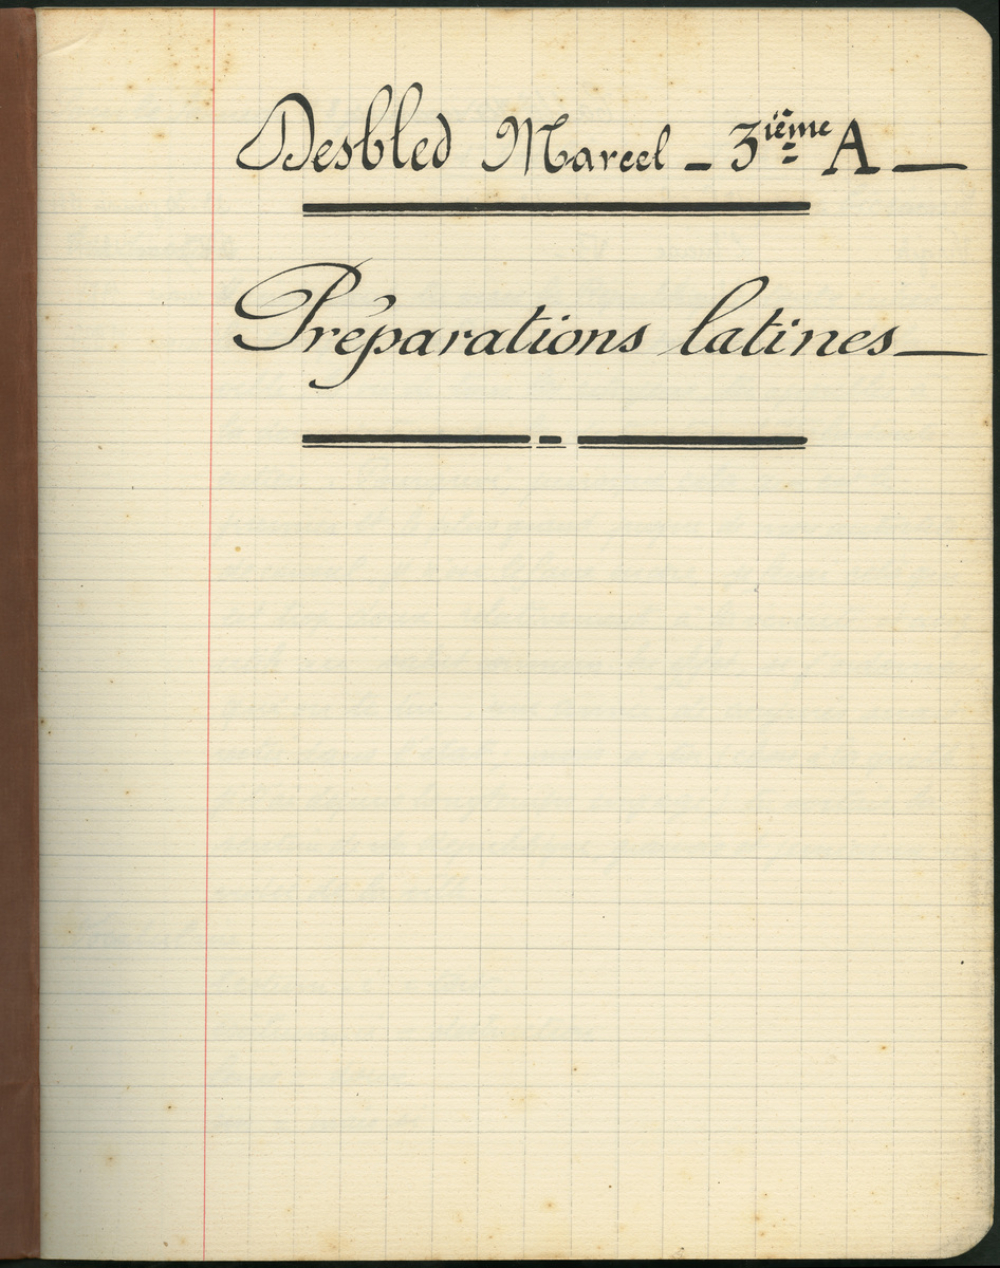 Desbled Marcel - 3ième A -
Préparations latines -